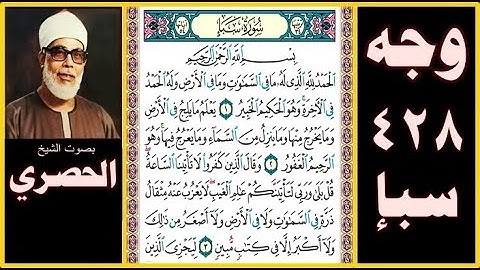 وجه
٤٢٨
سبإ
بصوت الشيخ
الحصري
سُورَةُ سَبَإٍ
بِسْمِ اللَّهِ الرَّحْمَٰنِ الرَّحِيمِ
الْحَمْدُ لِلَّهِ الَّذِي لَهُ مَا فِي السَّمَاوَاتِ وَمَا فِي الْأَرْضِ وَلَهُ الْحَمْدُ
فِي الْآخِرَةِ وَهُوَ الْحَكِيمُ الْخَبِيرُ ١ يَعْلَمُ مَا يَلِجُ فِي الْأَرْضِ
وَمَا يَخْرُجُ مِنْهَا وَمَا يَنزِلُ مِنَ السَّمَاءِ وَمَا يَعْرُجُ فِيهَا وَهُوَ
الرَّحِيمُ الْغَفُورُ ٢ وَقَالَ الَّذِينَ كَفَرُوا لَا تَأْتِينَا السَّاعَةُ
قُلْ بَلَىٰ وَرَبِّي لَتَأْتِيَنَّكُمْ عَالِمِ الْغَيْبِ لَا يَعْزُبُ عَنْهُ مِثْقَالُ
ذَرَّةٍ فِي السَّمَاوَاتِ وَلَا فِي الْأَرْضِ وَلَا أَصْغَرُ مِن ذَٰلِكَ
وَلَا أَكْبَرُ إِلَّا فِي كِتَابٍ مُّبِينٍ ٣ لِّيَجْزِيَ الَّذِينَ